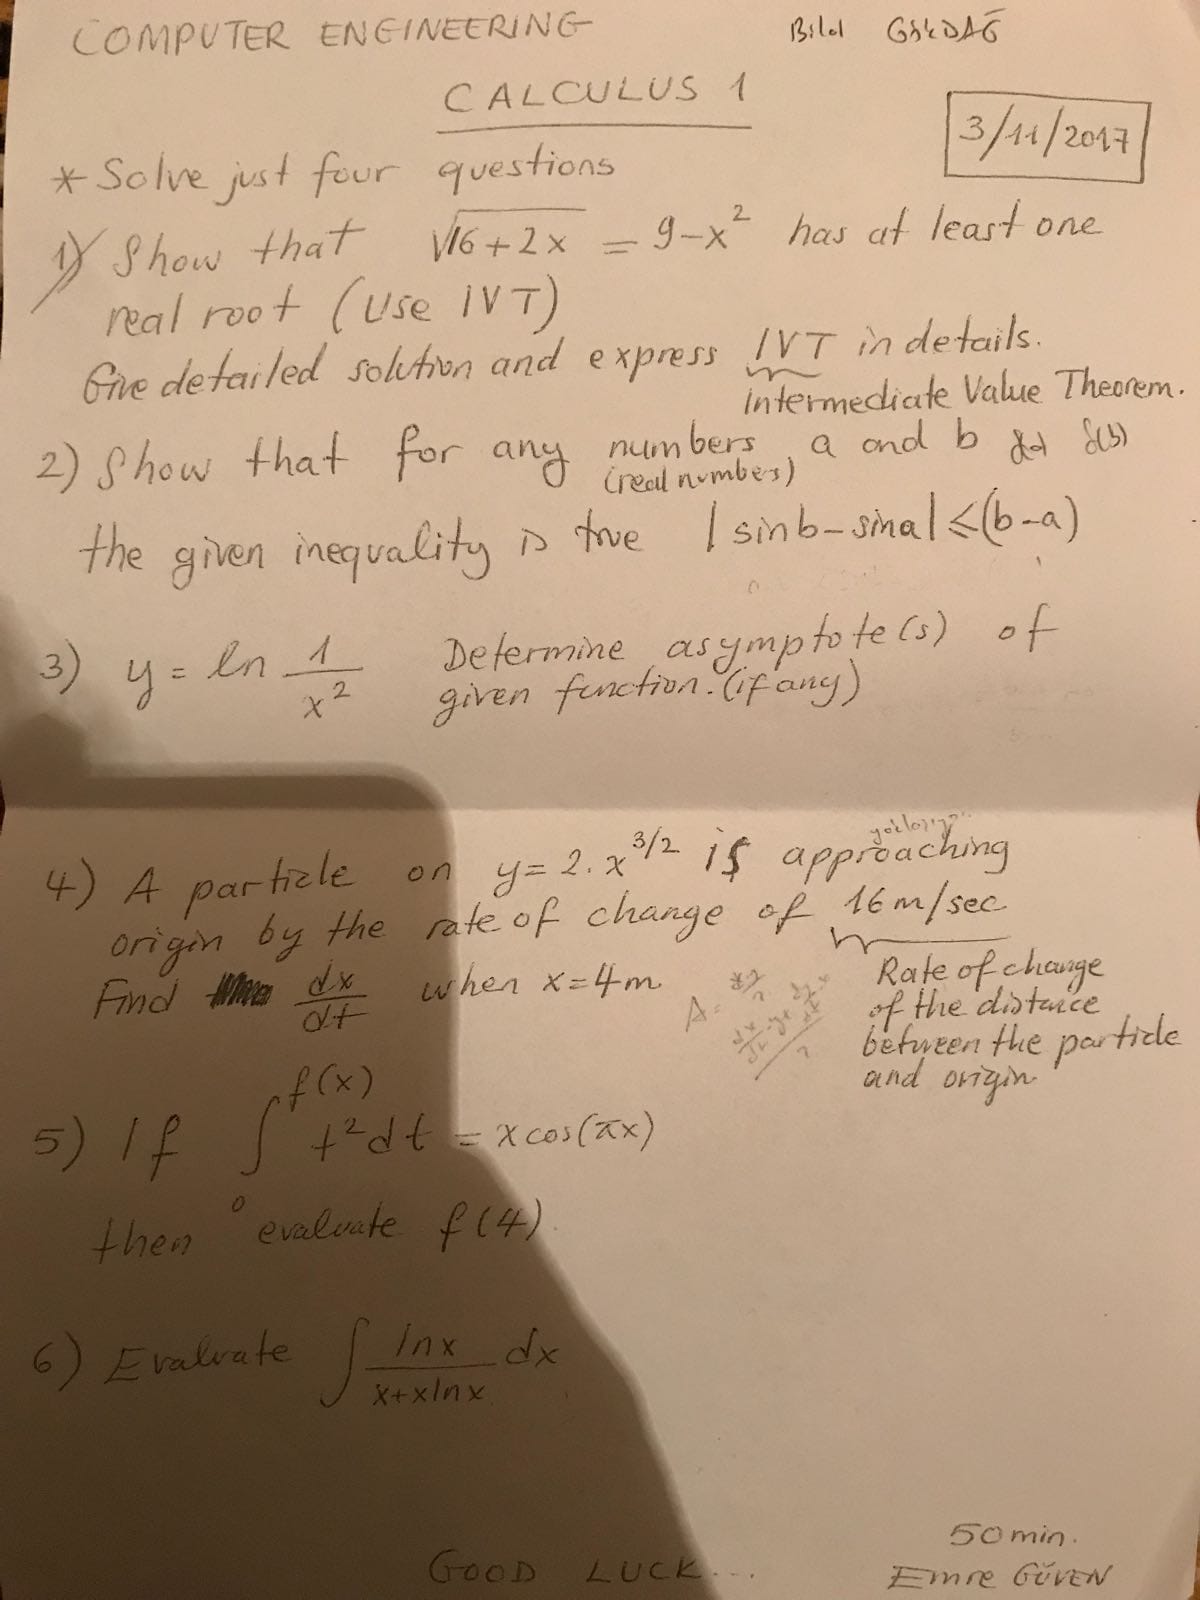 COMPUTER ENGINEERING
Bilal
CALCULUS 1
3/11/2017
* Solve just four questions
1) Show that √16+2x = 9-x² has at least one
real root (Use IVT)
Give detailed solution and express IVT in details.
Intermediate Value Theorem.
2) Show that for any numbers, a and b f(b)
(real numbers)
the given inequality is true |sinb-sina|≤(b-a)
3) y = ln 1/x² Determine asymptote(s) of
given function. (if any)
4) A particle on y=2.x^3/2 is approaching
origin by the rate of change of 16m/sec
Find dx/dt when x=4m
Rate of change
of the distance
between the particle
and origin.
5) If ∫₀^f(x) t²dt = xcos(πx)
then evaluate f(4).
6) Evaluate ∫ lnx/x+xlnx dx
50 min.
GOOD LUCK...
Emre GÜVEN